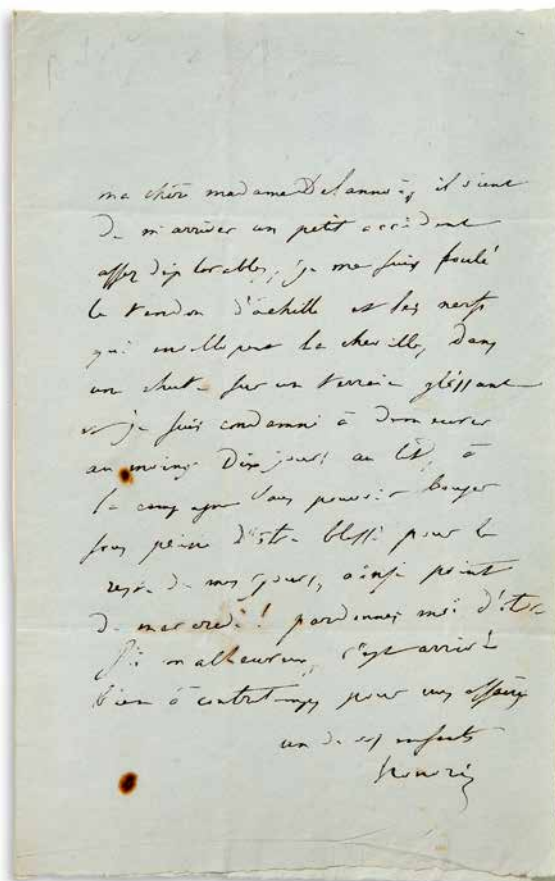 ma chère madame Delannoy, il vient
de m'arriver un petit accident
assez déplorable, je me suis foulé
le tendon d'achille et les nerfs
qui enveloppent la cheville, dans
une chute sur un terrain glissant
et je suis condamné à demeurer
au moins Dix jours au lit, à
la campagne sans pouvoir bouger
sous peine d'être blessé pour le
reste de mes jours, ainsi point
de mercredi ! pardonnez moi d'être
si malheureux, c'est arrivé
bien à contretemps pour mes affaires
un de vos enfants
honoré